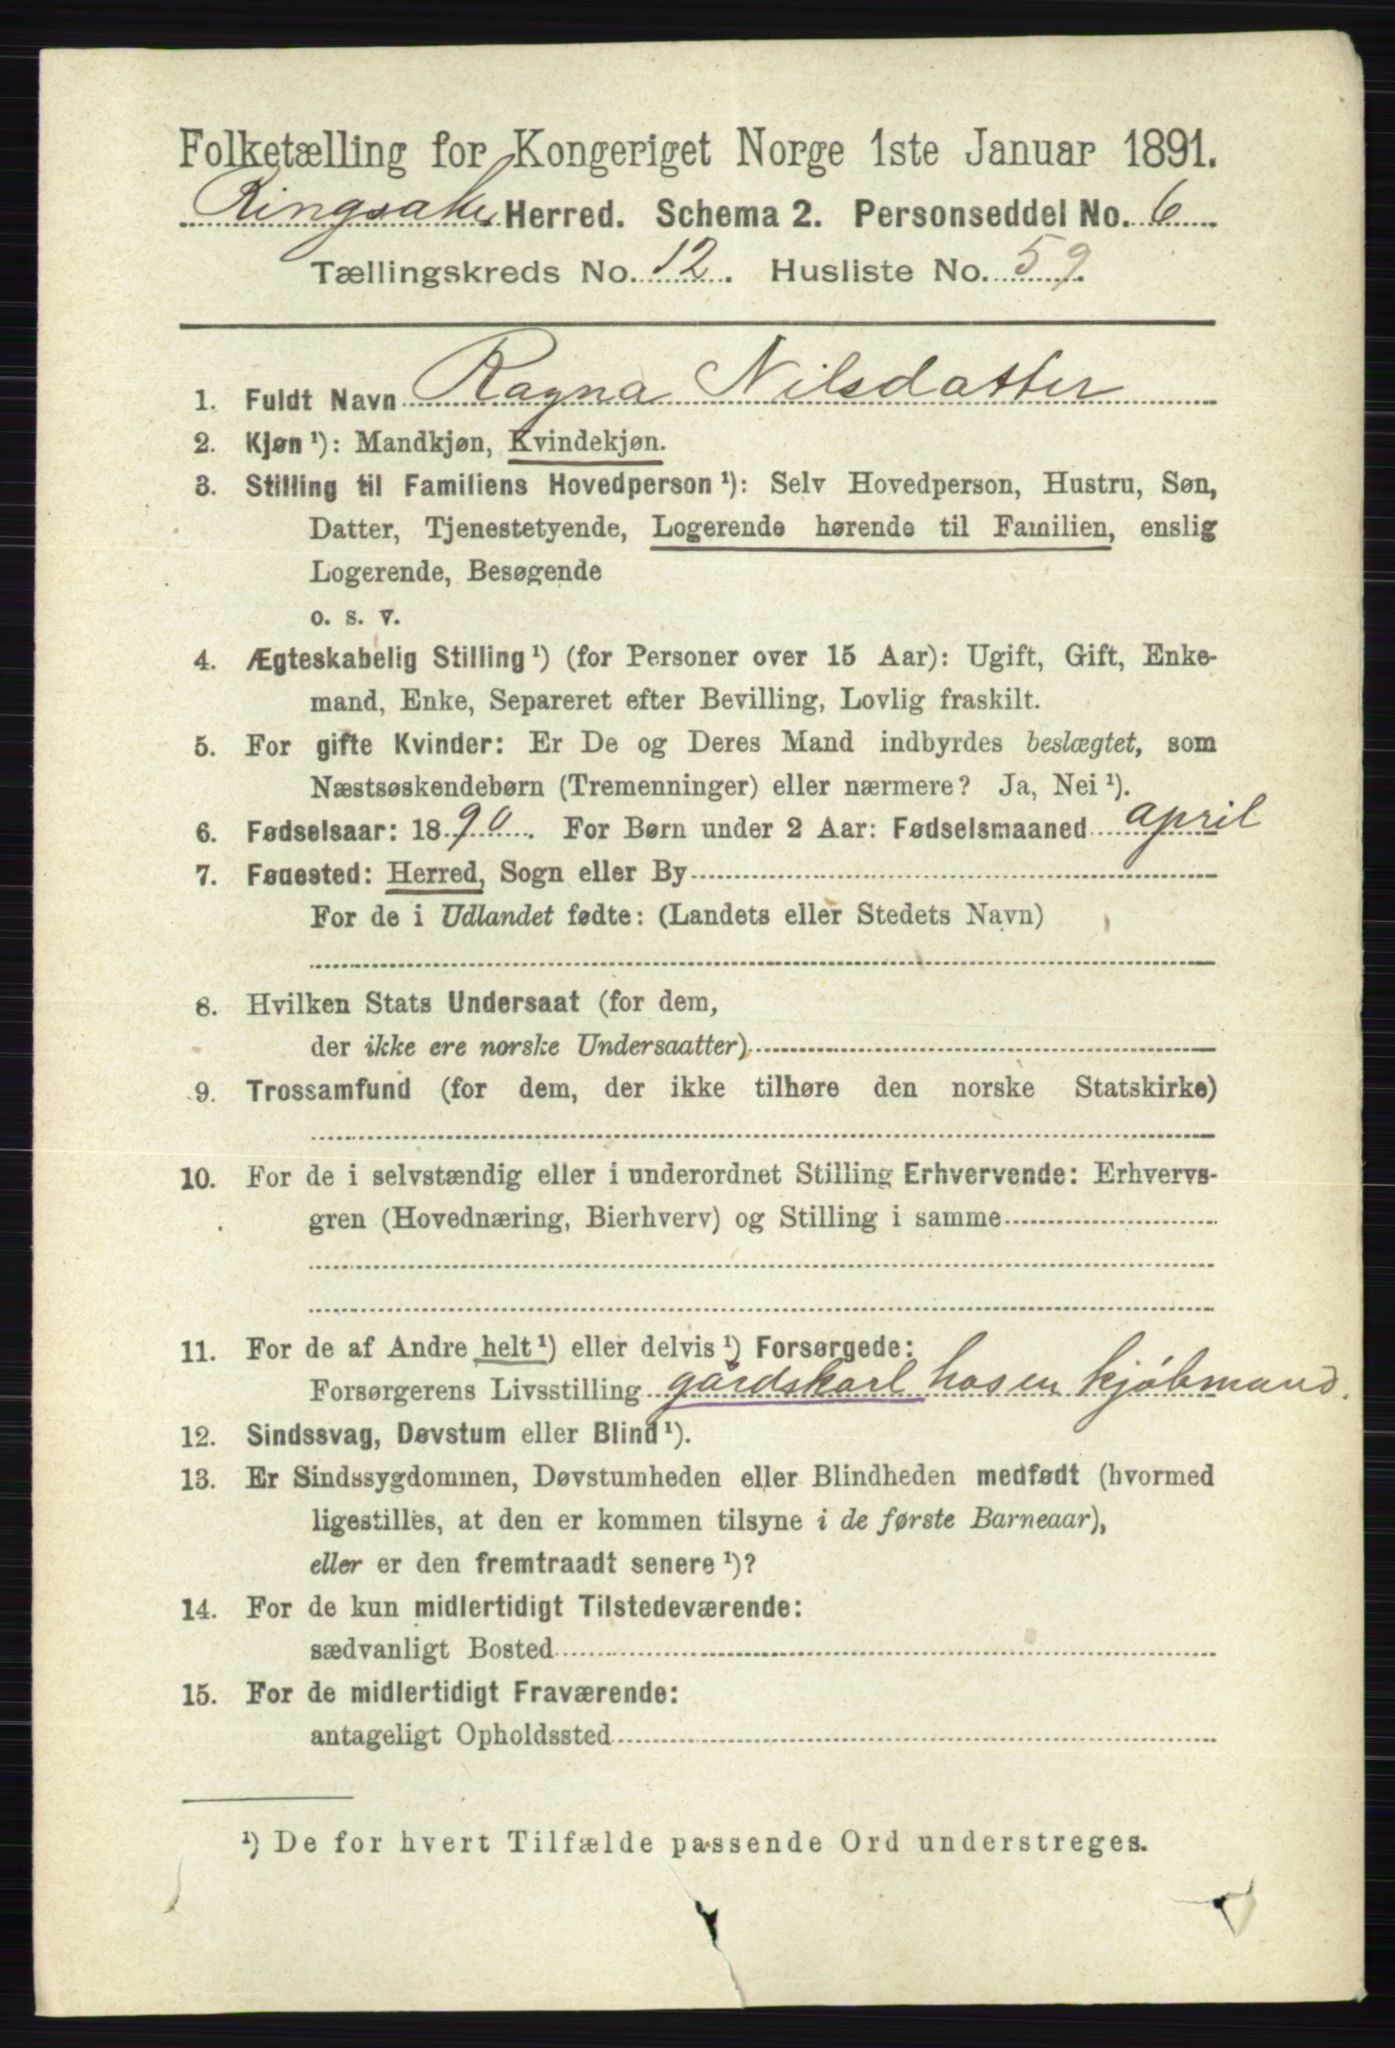 Folketælling for Kongeriget Norge 1ste Januar 1891.
Ringsaker Herred. Schema 2. Personseddel No. 6
Tællingskreds No. 12. Husliste No. 59
1. Fuldt Navn Ragna Nilsdatter
2. Kjøn ¹): Mandkjøn, Kvindekjøn.
3. Stilling til Familiens Hovedperson ¹): Selv Hovedperson, Hustru, Søn,
Datter, Tjenestetyende, Logerende hørende til Familien, enslig
Logerende, Besøgende
o. s. v.
4. Ægteskabelig Stilling ¹) (for Personer over 15 Aar): Ugift, Gift, Enke-
mand, Enke, Separeret efter Bevilling, Lovlig fraskilt.
5. For gifte Kvinder: Er De og Deres Mand indbyrdes beslægtet, som
Næstsøskendebørn (Tremenninger) eller nærmere? Ja, Nei ¹).
6. Fødselsaar: 1890. For Børn under 2 Aar: Fødselsmaaned april
7. Fødested: Herred, Sogn eller By
For de i Udlandet fødte: (Landets eller Stedets Navn)
8. Hvilken Stats Undersaat (for dem,
der ikke ere norske Undersaatter)
9. Trossamfund (for dem, der ikke tilhøre den norske Statskirke)
10. For de i selvstændig eller i underordnet Stilling Erhvervende: Erhvervs-
gren (Hovednæring, Bierhverv) og Stilling i samme
11. For de af Andre helt ¹) eller delvis ¹) Forsørgede:
Forsørgerens Livsstilling gårdskarl hos en kjøbmand.
12. Sindssvag, Døvstum eller Blind ¹).
13. Er Sindssygdommen, Døvstumheden eller Blindheden medfødt (hvormed
ligestilles, at den er kommen tilsyne i de første Barneaar),
eller er den fremtraadt senere ¹)?
14. For de kun midlertidigt Tilstedeværende:
sædvanligt Bosted
15. For de midlertidigt Fraværende:
antageligt Opholdssted
¹) De for hvert Tilfælde passende Ord understreges.